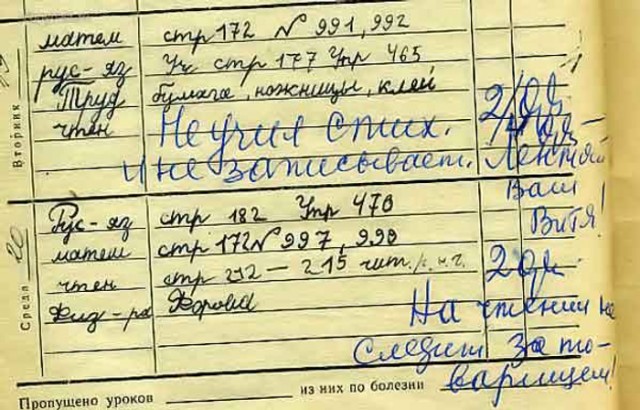 матем стр 172 № 991, 992
рус-яз Уч стр 177 Упр 465
Труд бумага, ножницы, клей
чтен Не учил стих. 2/два
и не записывает. Лентяй
Ваш
Витя!
Вторник
Рус-яз стр 182 Упр 478
матем стр 172 № 997, 998
чтен стр 212 – 215 чит. 2 два
Физ-ра Форма
На чтении не
следит за то-
варищем!
Среда 20
Пропущено уроков из них по болезни